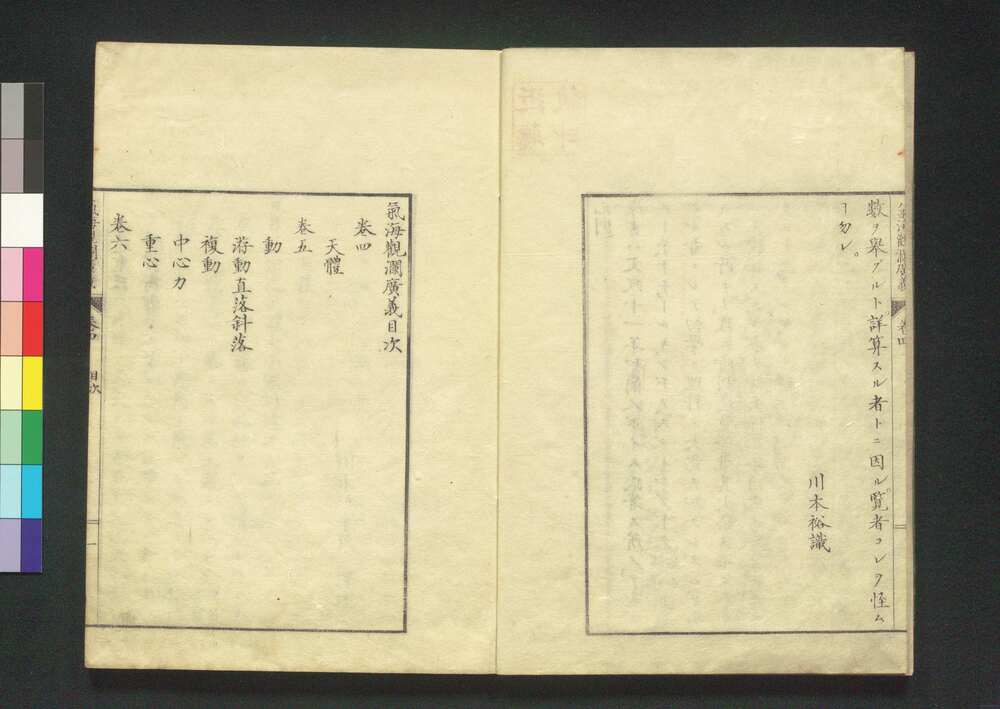 數ヲ舉グルト詳算スル者トニ因ル。覽者コレヲ怪ム
ヿ勿レ。
川本裕識
卷四
氣海觀瀾廣義目次
卷四
天體
卷五
動
游動直落斜落
複動
中心力
重心
卷六
卷四
目次
一